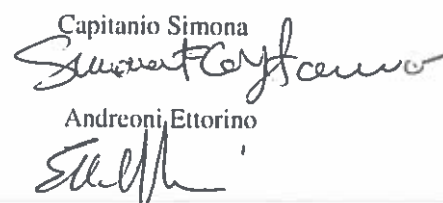 Capitanio Simona
Simona Capitanio
Andreoni Ettorino